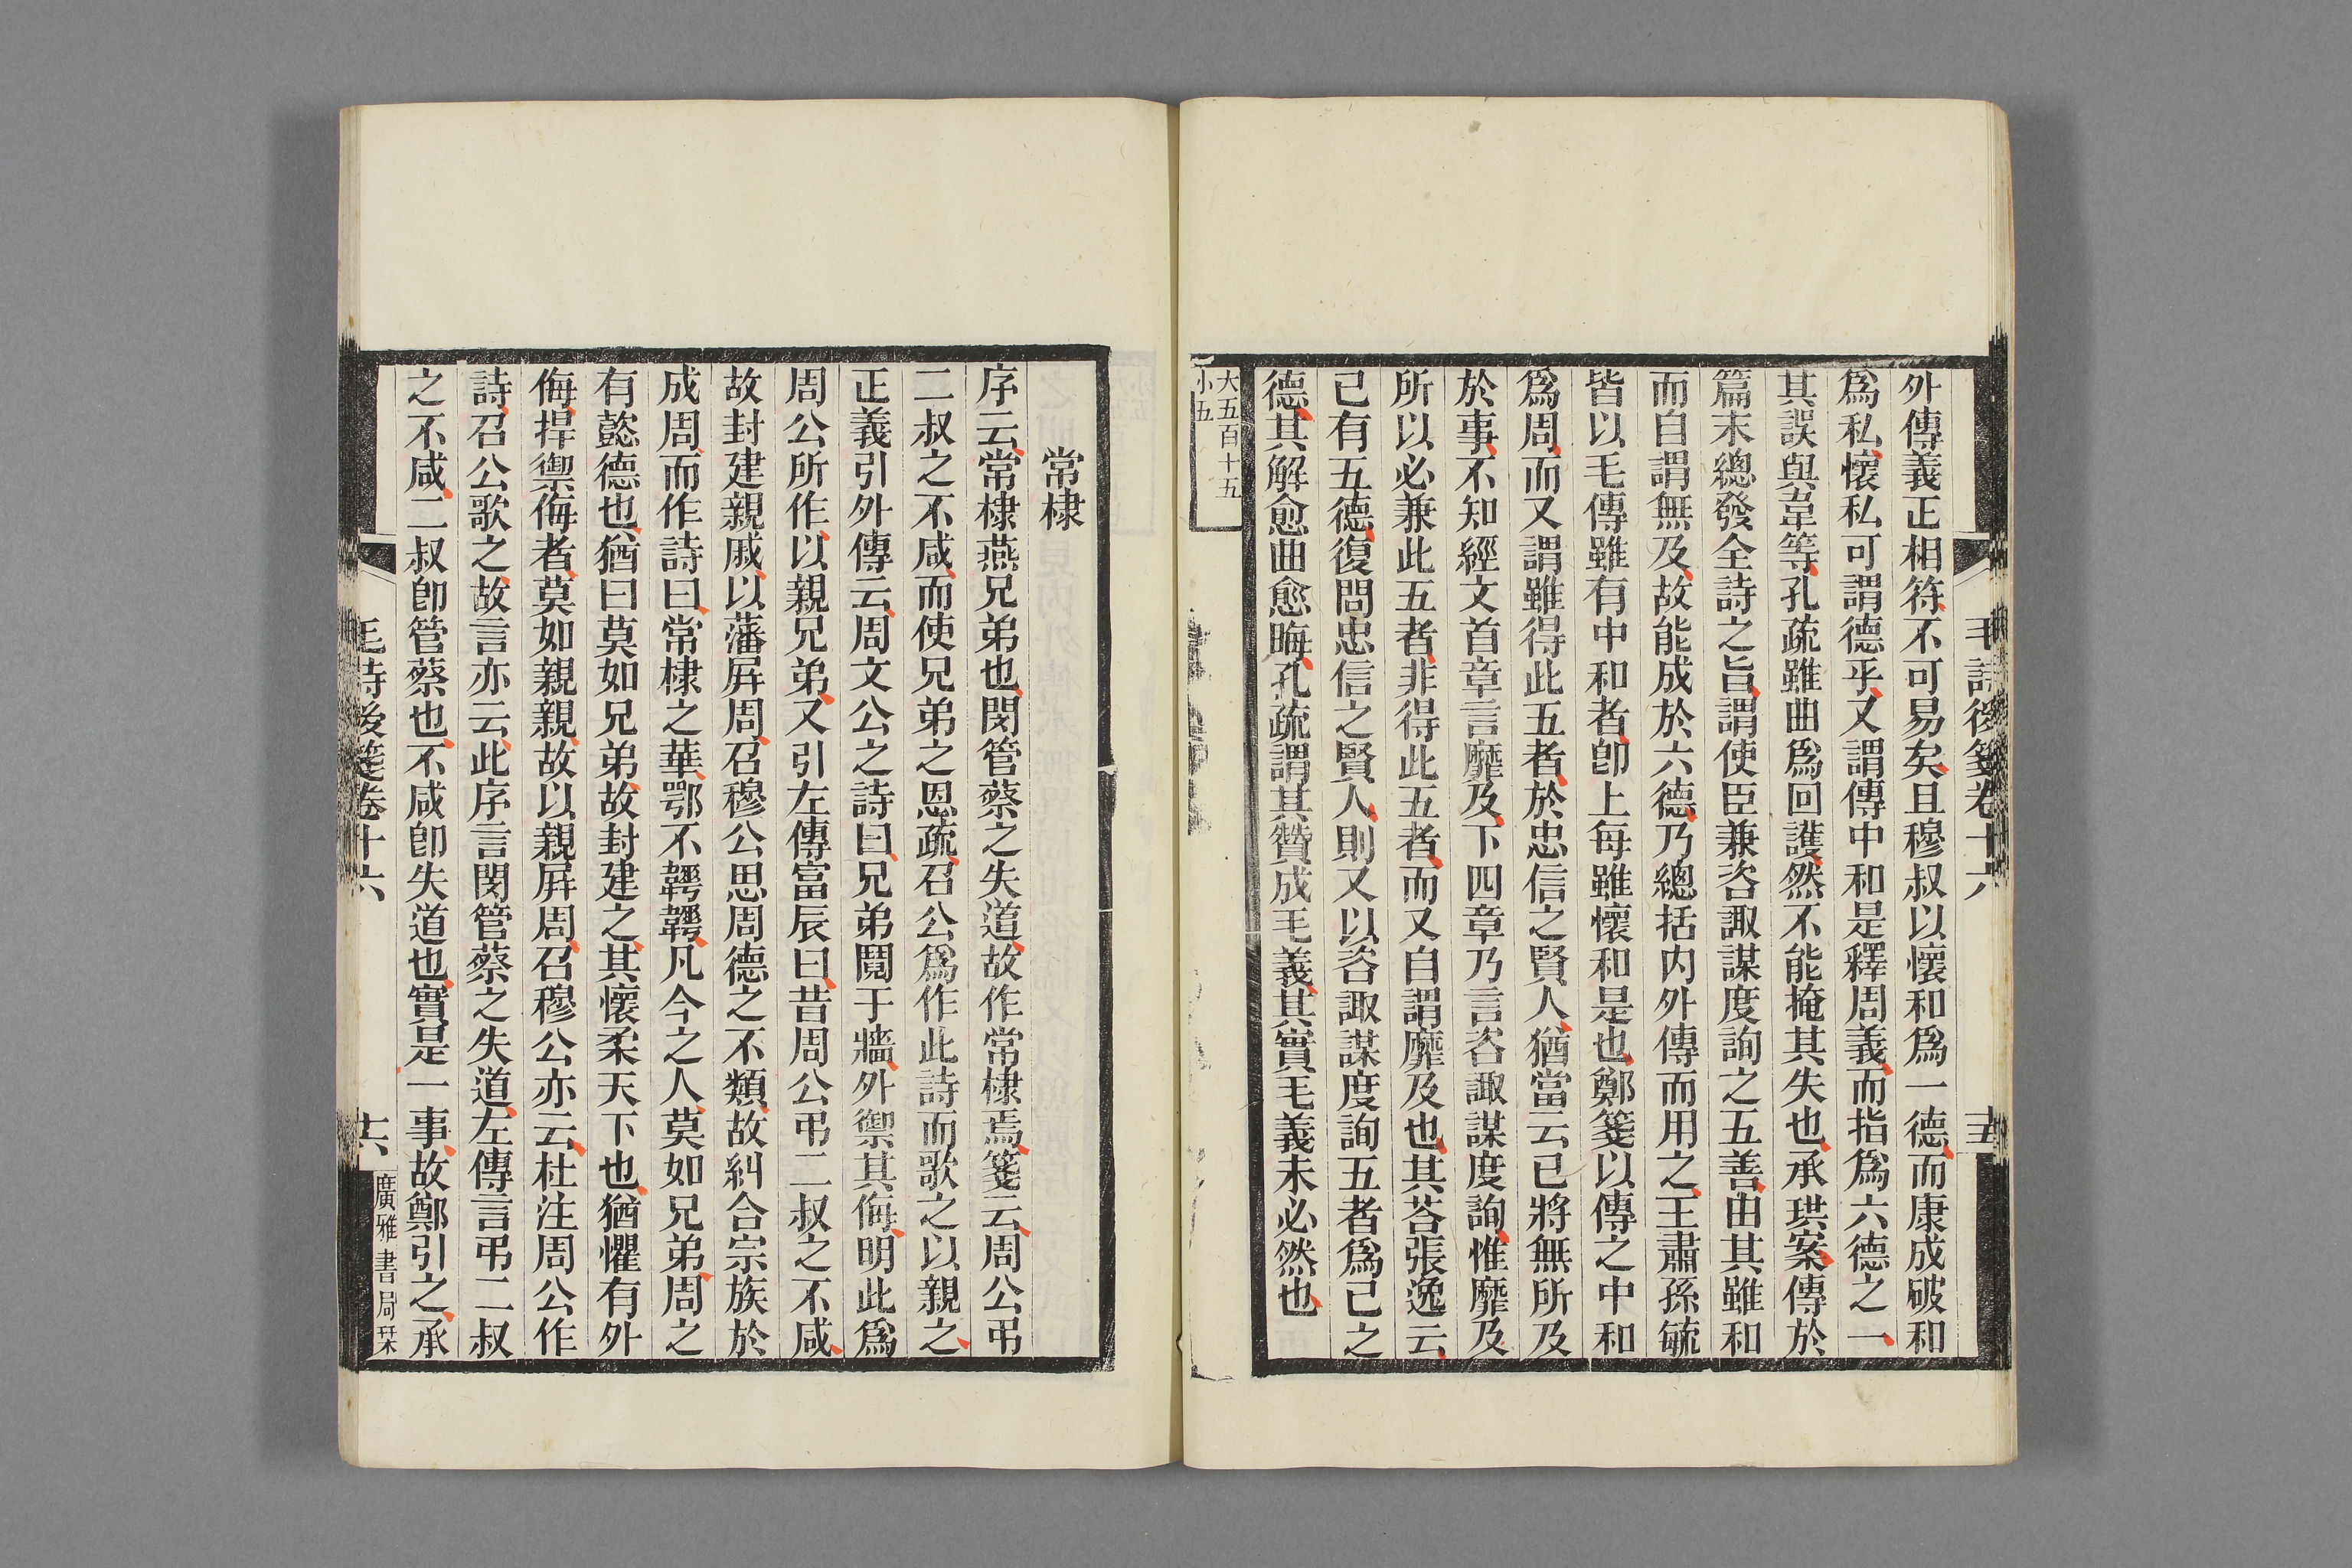 毛詩後箋卷十六
十五
外傳義正相符不可易矣且穆叔以懷和爲一德而康成破和
爲私懷私可謂德乎又謂傳中和是釋周義而指爲六德之一
其誤與韋等孔疏雖曲爲回護然不能掩其失也承珙案傳於
篇末總發全詩之旨謂使臣兼咨諏謀度詢之五善由其雖和
而自謂無及故能成於六德乃總括内外傳而用之王肅孫毓
皆以毛傳雖有中和者卽上每雖懷和是也鄭箋以傳之中和
爲周而又謂雖得此五者於忠信之賢人猶當云已將無所及
於事不知經文首章言靡及下四章乃言咨諏謀度詢惟靡及
所以必兼此五者非得此五者而又自謂靡及也其荅張逸云
已有五德復問忠信之賢人則又以咨諏謀度詢五者爲己之
德其解愈曲愈晦孔疏謂其贊成毛義其實毛義未必然也
大五百十五
小五
常棣
序云常棣燕兄弟也閔管蔡之失道故作常棣焉箋云周公弔
二叔之不咸而使兄弟之恩疏召公爲作此詩而歌之以親之
正義引外傳云周文公之詩曰兄弟鬩于牆外禦其侮明此爲
周公所作以親兄弟又引左傳富辰曰昔周公弔二叔之不咸
故封建親戚以藩屏周召穆公思周德之不類故糾合宗族於
成周而作詩曰常棣之華鄂不韡韡凡今之人莫如兄弟周之
有懿德也猶曰莫如兄弟故封建之其懷柔天下也猶懼有外
侮捍禦侮者莫如親親故以親屏周召穆公亦云杜注周公作
詩召公歌之故言亦云此序言閔管蔡之失道左傳言弔二叔
之不咸二叔卽管蔡也不咸卽失道也實是一事故鄭引之承
毛詩後箋卷十六
十六
廣雅書局栞